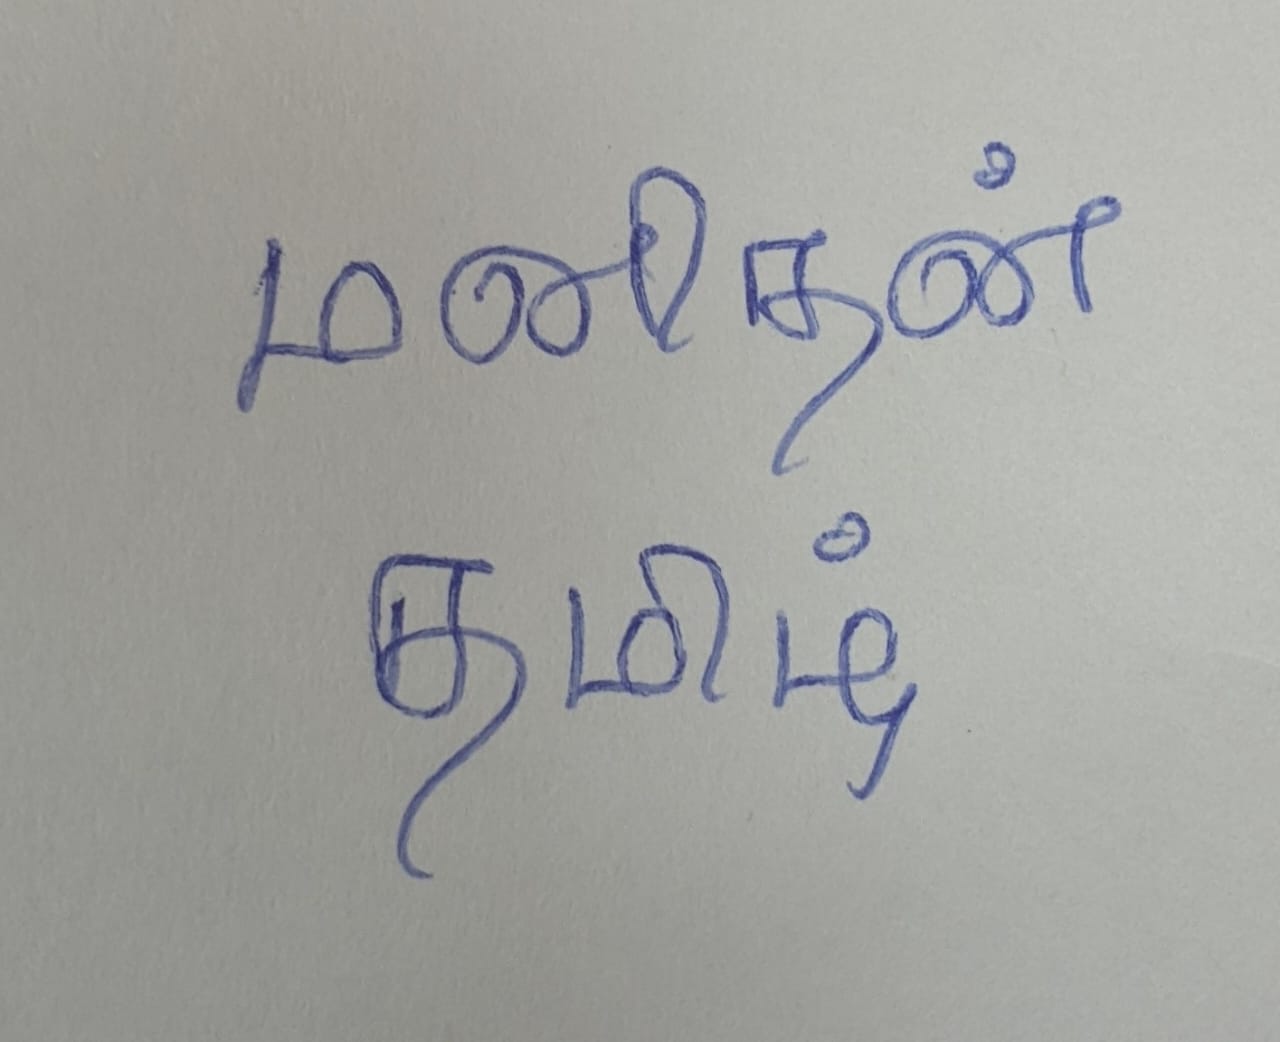 மனிதன்
தமிழ்